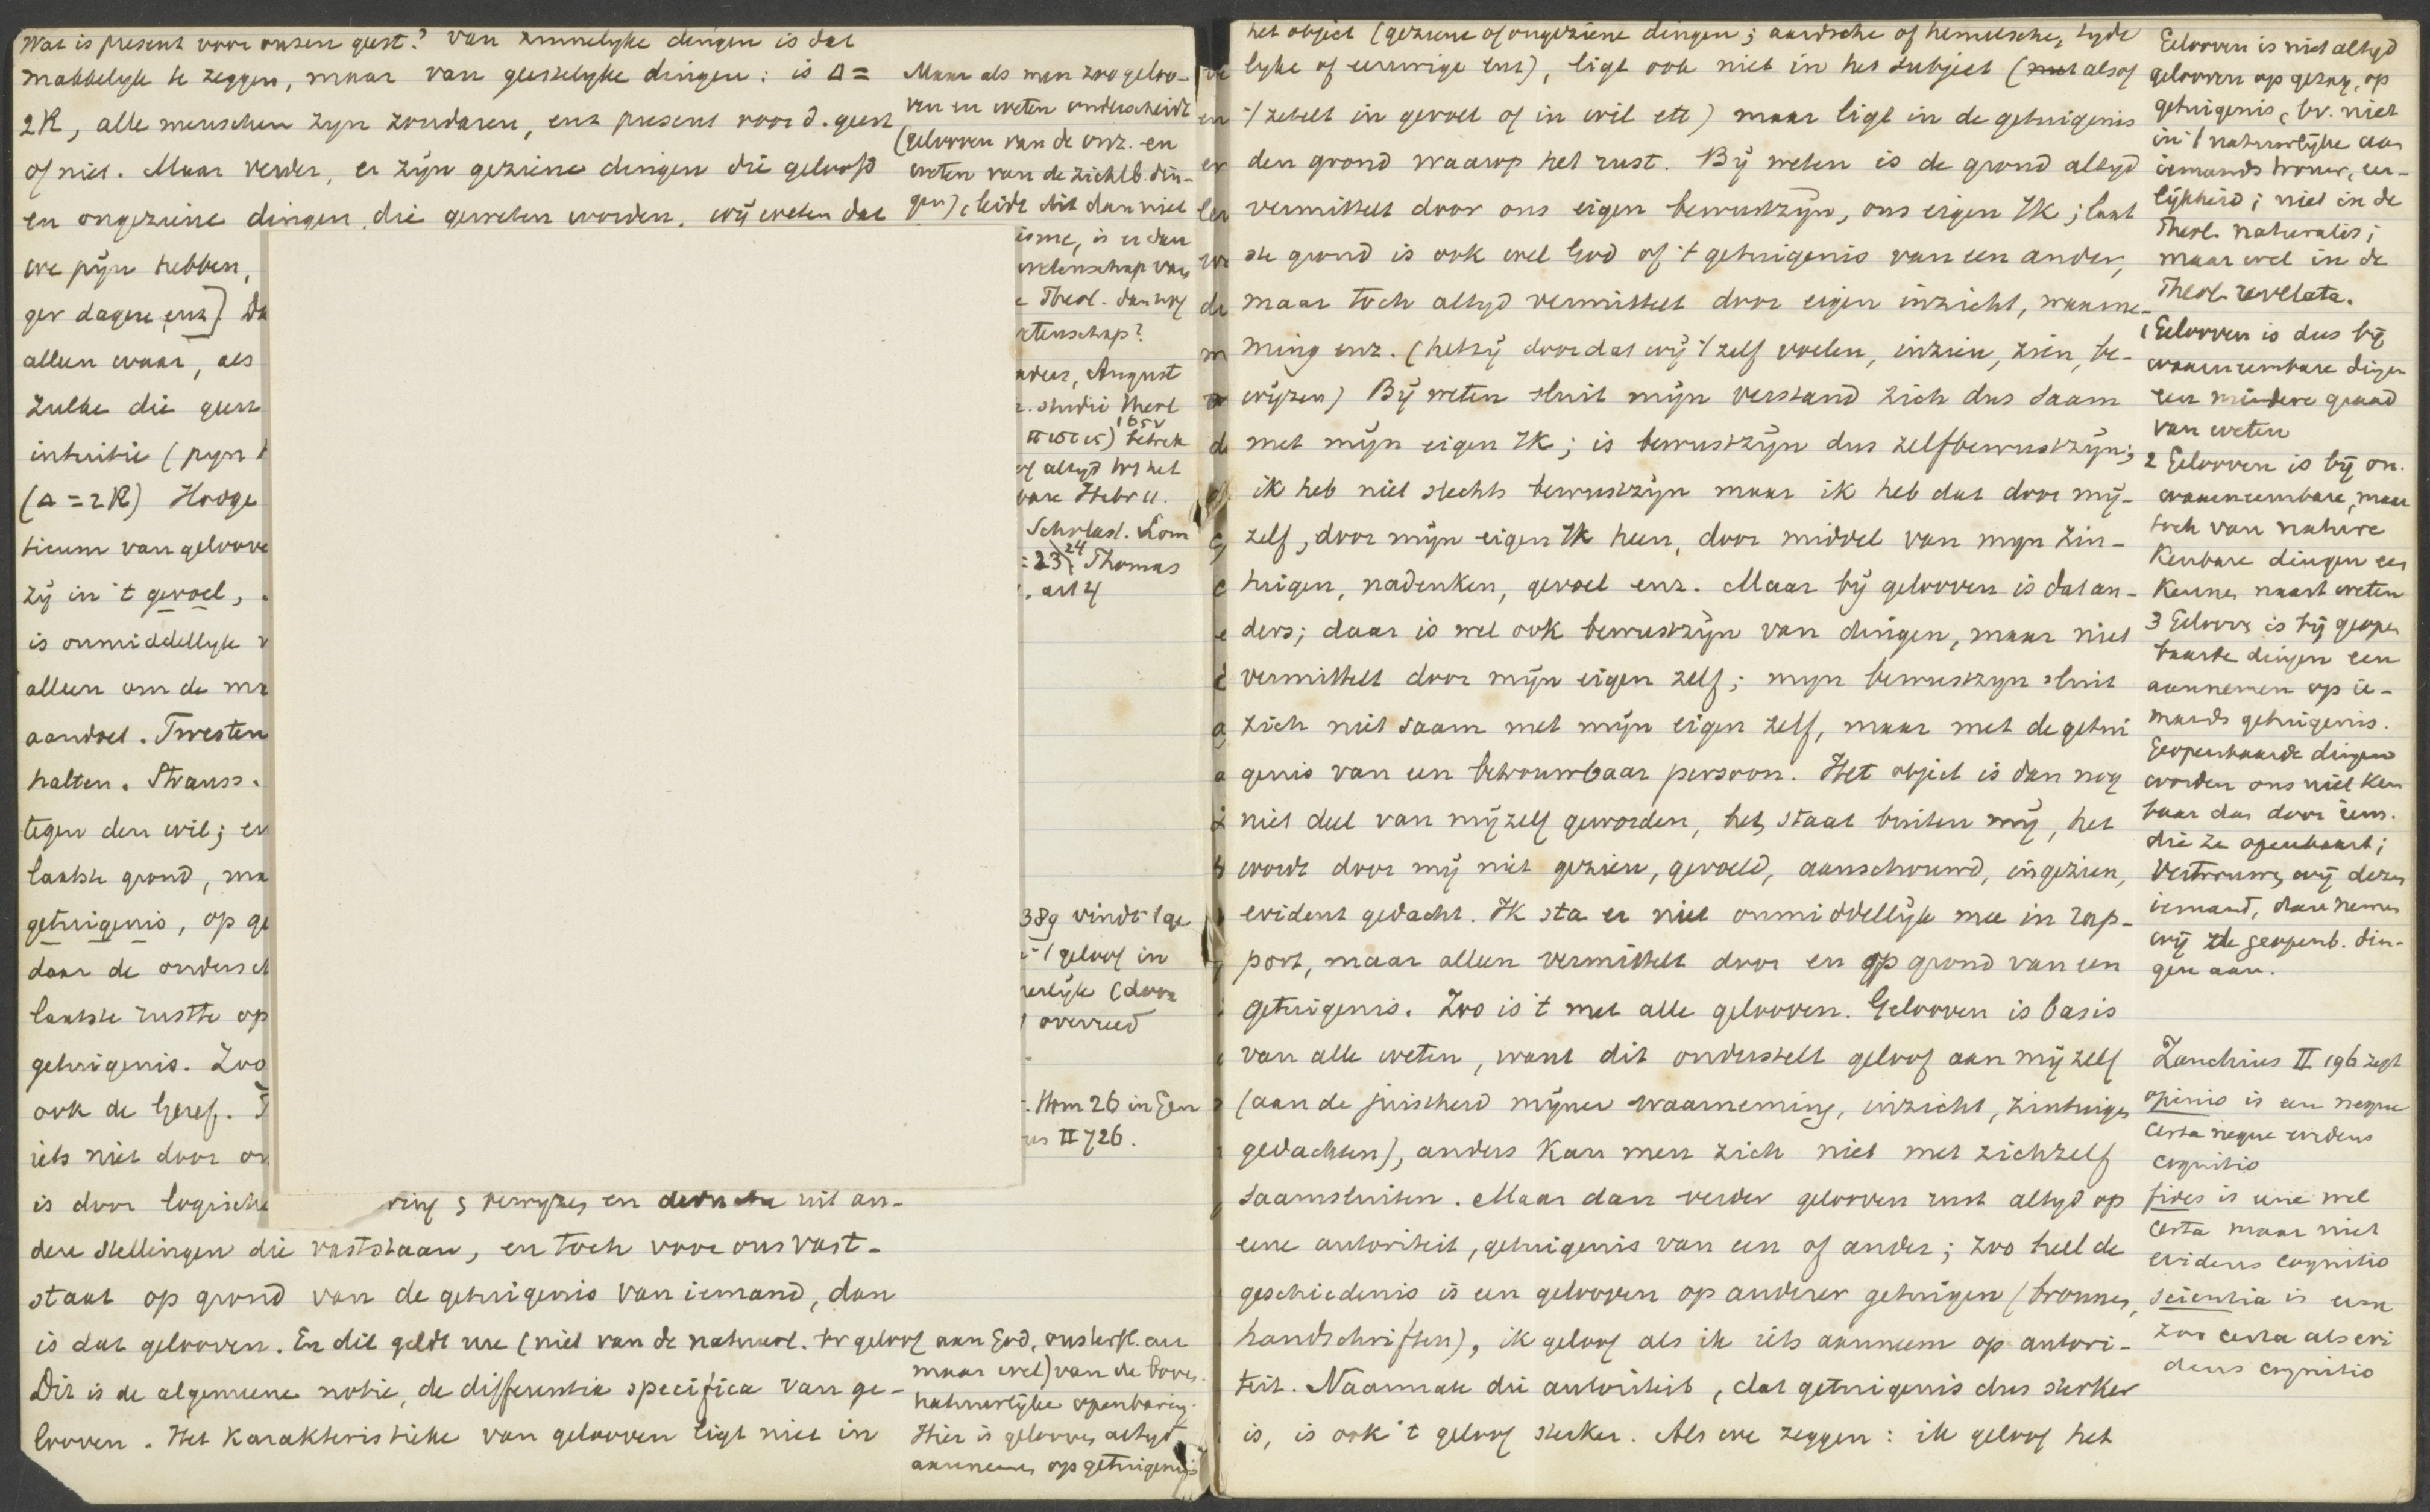 Wat is present voor onzen geest? Van zinnelyke dingen is dat
makkelyk te zeggen, maar van geestelyke dingen: is Δ =
2R, alle menschen zyn zondaren, enz present voor d. geest
of niet. Maar verder, er zijn geziene dingen die geloofd
en ongeziene dingen die geweten worden. wij weten dat
we pijn hebben,
ger dagen enz] Da
alleen waar, als
zulke die geest
intuitie (pyn
(Δ = 2R) Hooge
ticum van geloove
zij in 't gevoel,
is onmiddellyk
alleen om de
aandoet. Twesten
halten. Strauss.
tegen den wil; en
laatste grond, ma
getuigenis, op ge
daar de ondersch
laatste rustte op
getuigenis. Zoo
ook de Geref.
iets niet door
is door logische
ring bewyzen en uit an-
dere stellingen die vaststaan, en toch voor ons vast-
staat op grond van de getuigenis van iemand, dan
is dat gelooven. En dit geldt nu (niet van de natuurl. bv geloof aan God, onsterfl. an
Dit is de algemeene notie, de differentia specifica van ge-
looven. Het karakteristieke van gelooven ligt niet in
Maar als men zoo geloo-
ven en weten onderscheidt
(gelooven van de onz. en
weten van de zichtb. din-
gen), leidt dit dan niet
isme, is er dan
wetenschap van
e Theol. dan nog
etenschap?
August
studie Theol
betrek
of altyd tot het
bare Hebr 11.
Scholast. Lom
23 24 Thomas
. art 4
389 vindt 't ge
't geloof in
(door
overreed
. Hom 26 in Gen
II 726.
maar wel) van de boven-
natuurlijke openbaring.
Hier is gelooven altyd
aannemen op getuigenis
het object (geziene of ongeziene dingen; aardsche of hemelsche, tyde
lyke of eeuwige enz), ligt ook niet in het subject (met alsof
't zetelt in gevoel of in wil etc) maar ligt in de getuigenis
den grond waarop het rust. By weten is de grond altyd
vermittelt door ons eigen bewustzyn, ons eigen Ik; laat
ste grond is ook wel God of 't getuigenis van een ander,
maar toch altyd vermittelt door eigen inzicht, waarne-
ming enz. (hetzij doordat wij 't zelf voelen, inzien, zien, be-
wijzen) Bij weten sluit mijn verstand zich dus saam
met mijn eigen Ik; is bewustzijn dus zelfbewustzijn;
ik heb niet slechts bewustzijn maar ik heb dat door mij-
zelf, door mijn eigen Ik heen, door middel van mijn zin-
tuigen, nadenken, gevoel enz. Maar bij gelooven is dat an-
ders; daar is wel ook bewustzijn van dingen, maar niet
vermittelt door mijn eigen zelf; myn bewustzyn sluit
zich niet saam met mijn eigen zelf, maar met de getui
genis van een betrouwbaar persoon. Het object is dan nog
niet deel van mijzelf geworden, het staat buiten mij, het
wordt door mij niet gezien, gevoeld, aanschouwd, ingezien,
evident gedacht. Ik sta er niet onmiddellijk mee in rap-
port, maar alleen vermittelt door en op grond van een
getuigenis. Zoo is 't met alle gelooven. Gelooven is basis
van alle weten, want dit onderstelt geloof aan mijzelf
(aan de juistheid mijner waarneming, inzicht, zintuigen
gedachten), anders kan men zich niet met zichzelf
saamsluiten. Maar dan verder gelooven rust altyd op
eene autoriteit, getuigenis van een of ander; zoo heel de
geschiedenis is een gelooven op anderer getuigen (bronnen,
handschriften), ik geloof als ik iets aanneem op autori-
teit. Naarmate die autoriteit, dat getuigenis dus sterker
is, is ook 't geloof sterker. Als we zeggen: ik geloof het
Gelooven is niet altyd
gelooven op gezag, op
getuigenis, bv. niet
in 't natuurlijke aan
iemands trouw, eer-
lijkheid; niet in de
Theol. naturalis;
maar wel in de
Theol. revelata.
1 Gelooven is dus bij
waarneembare dingen
een mindere graad
van weten
2 Gelooven is bij on-
waarneembare, maar
toch van nature
kenbare dingen een
kennen naast weten
3 Geloove is bij geopen
baarde dingen een
aannemen op ie-
mands getuigenis.
Geopenbaarde dingen
worden ons niet ken
baar dan door iem.
die ze openbaart;
Vertrouwen wij dezen
iemand, dan nemen
wij de geopenb. din-
gen aan.
Zanchius II 196 zegt
opinio is een neque
certa neque evidens
cognitio
fides is eene wel
certa maar niet
evidens cognitio
scientia is eene
zoo certa als evi
dens cognitio